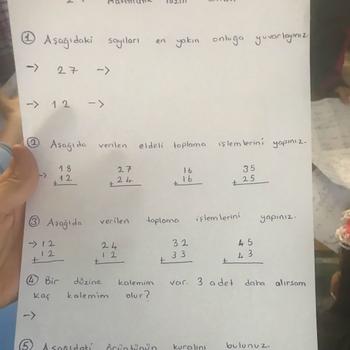 ① Aşağıdaki sayıları en yakın onluğa yuvarlayınız
-> 27 ->
-> 12 ->
② Aşağıda verilen eldeli toplama işlemlerini yapınız.
-> 18 27 16 35
+ 12 + 24 + 16 + 25
③ Aşağıda verilen toplama işlemlerini yapınız.
-> 12 24 32 45
+ 12 + 12 + 33 + 43
④ Bir düzine kalemim var. 3 adet daha alırsam
kaç kalemim olur?
->
⑤ Aşağıdaki örüntünün kuralını bulunuz.